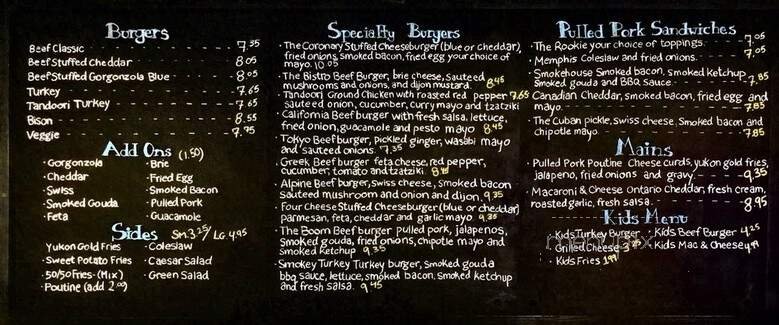 Burgers
Beef Classic 7.35
Beef Stuffed Cheddar 8.05
Beef Stuffed Gorgonzola Blue 8.05
Turkey 7.65
Tandoori Turkey 7.65
Bison 8.55
Veggie 7.75
Add Ons (1.50)
· Gorgonzola · Brie
· Cheddar · Fried Egg
· Swiss · Smoked Bacon
· Smoked Gouda · Pulled Pork
· Feta · Guacamole
Sides Sm 3.25/LG 4.95
Yukon Gold Fries · Coleslaw
· Sweet Potato Fries · Caesar Salad
· 50/50 Fries-(Mix) · Green Salad
· Poutine (add 2.00)
Specialty Burgers
· The Coronary Stuffed Cheeseburger (blue or cheddar),
fried onions, smoked bacon, fried egg your choice of
mayo. 10.05
· The Bistro Beef Burger, brie cheese, sauteed
mushrooms and onions, and dijon mustard. 8.45
· Tandoori Ground Chicken with roasted red pepper 7.65
sauteed onion, cucumber, curry mayo and tzatziki
· California Beef burger with fresh salsa, lettuce,
fried onion, guacamole and pesto mayo 8.45
· Tokyo Beef burger, pickled ginger, wasabi mayo
and sauteed onions. 7.35
· Greek Beef burger feta cheese, red pepper,
cucumber, tomato and tzatziki.
· Alpine Beef burger, swiss cheese, smoked bacon
sauteed mushroom and onion and dijon. 9.35
· Four Cheese Stuffed Cheeseburger (blue or cheddar)
parmesan, feta, cheddar and garlic mayo. 9.35
· The Boom Beef burger pulled pork, jalapenos,
smoked gouda, fried onions, chipotle mayo and
smoked ketchup 9.35
· Smokey Turkey Turkey burger, smoked gouda
bbq sauce, lettuce, smoked bacon, smoked ketchup
and fresh salsa. 9.45
Pulled Pork Sandwiches
· The Rookie your choice of toppings. 7.05
· Memphis Coleslaw and fried onions. 7.05
· Smokehouse Smoked bacon, smoked ketchup,
smoked gouda and BBQ sauce. 7.85
· Canadian Cheddar, smoked bacon, fried egg and
mayo. 7.85
· The Cuban pickle, swiss cheese, smoked bacon and
chipotle mayo. 7.85
Mains
· Pulled Pork Poutine Cheese curds, yukon gold fries,
jalapeno, fried onions and gravy. 9.35
· Macaroni & Cheese Ontario Cheddar, fresh cream,
roasted garlic, fresh salsa. 8.95
Kids Menu
· Kids Turkey Burger · Kids Beef Burger 4.25
· Grilled Cheese · Kids Mac & Cheese 4.99
· Kids Fries 1.99